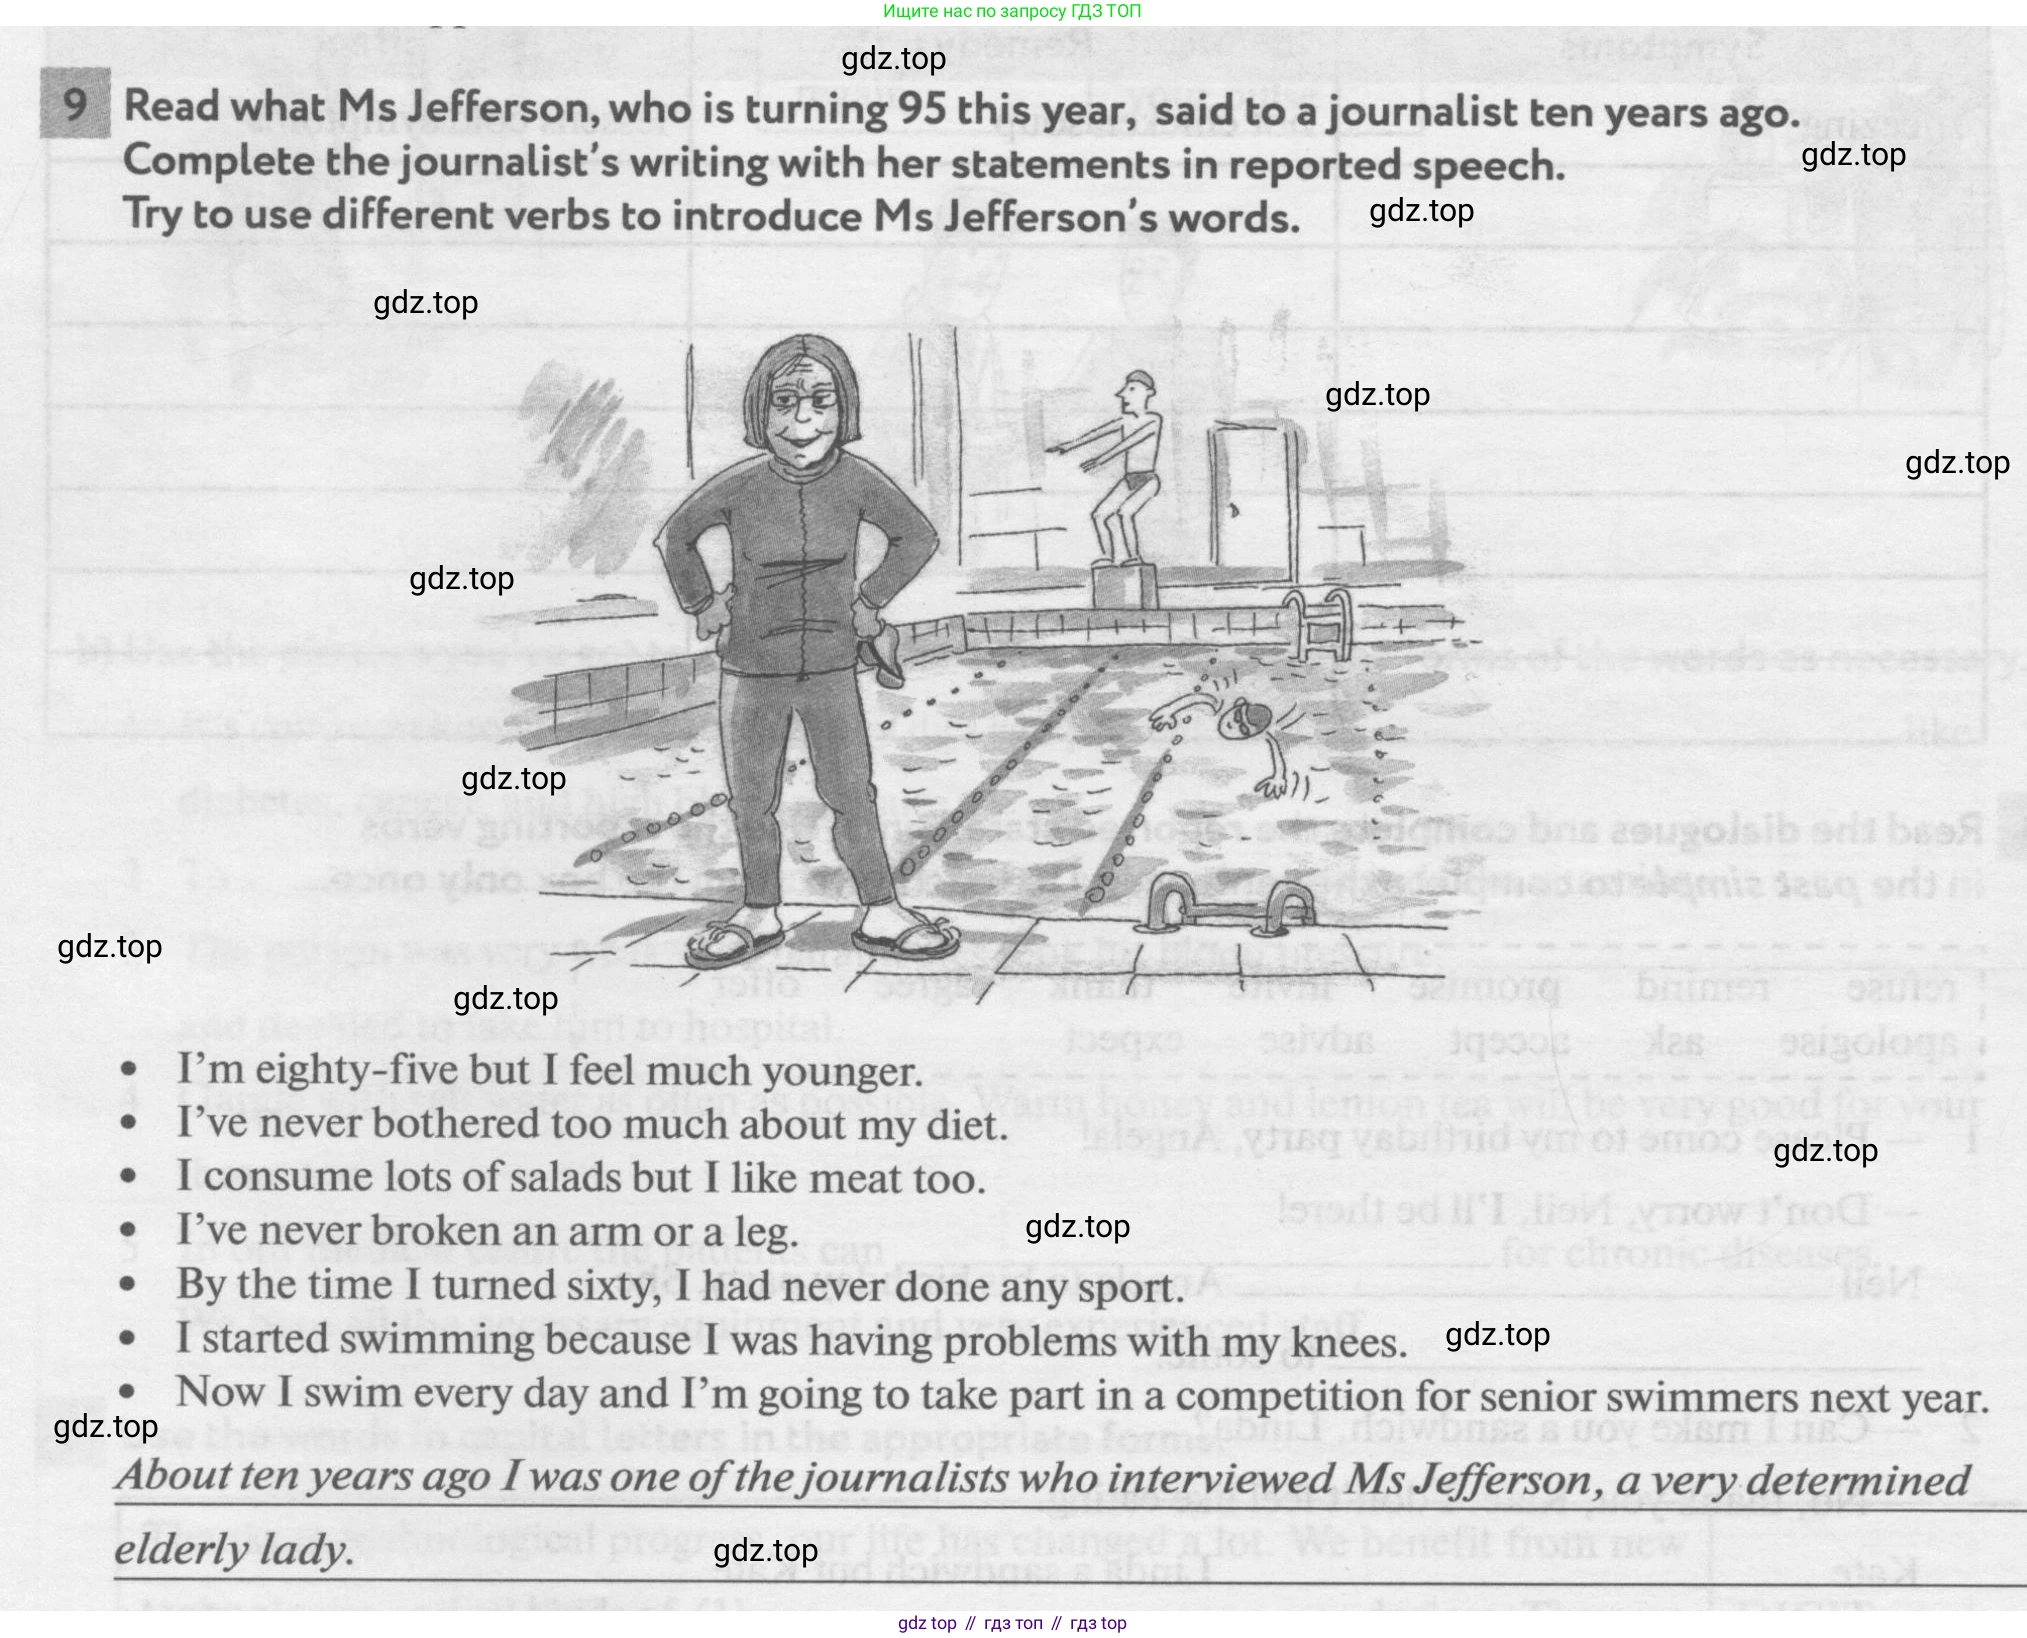 Ищите нас по запросу ГДЗ ТОП
gdz.top
9 Read what Ms Jefferson, who is turning 95 this year, said to a journalist ten years ago.
gdz.top
Complete the journalist's writing with her statements in reported speech.
Try to use different verbs to introduce Ms Jefferson's words.
gdz.top
gdz.top
gdz.top
gdz.top
gdz.top
gdz.top
gdz.top
gdz.top
• I'm eighty-five but I feel much younger.
• I've never bothered too much about my diet.
gdz.top
• I consume lots of salads but I like meat too.
• I've never broken an arm or a leg.
gdz.top
• By the time I turned sixty, I had never done any sport.
• I started swimming because I was having problems with my knees.
gdz.top
• Now I swim every day and I'm going to take part in a competition for senior swimmers next year.
gdz.top
About ten years ago I was one of the journalists who interviewed Ms Jefferson, a very determined
elderly lady.
gdz.top
gdz top // гдз топ // гдз top